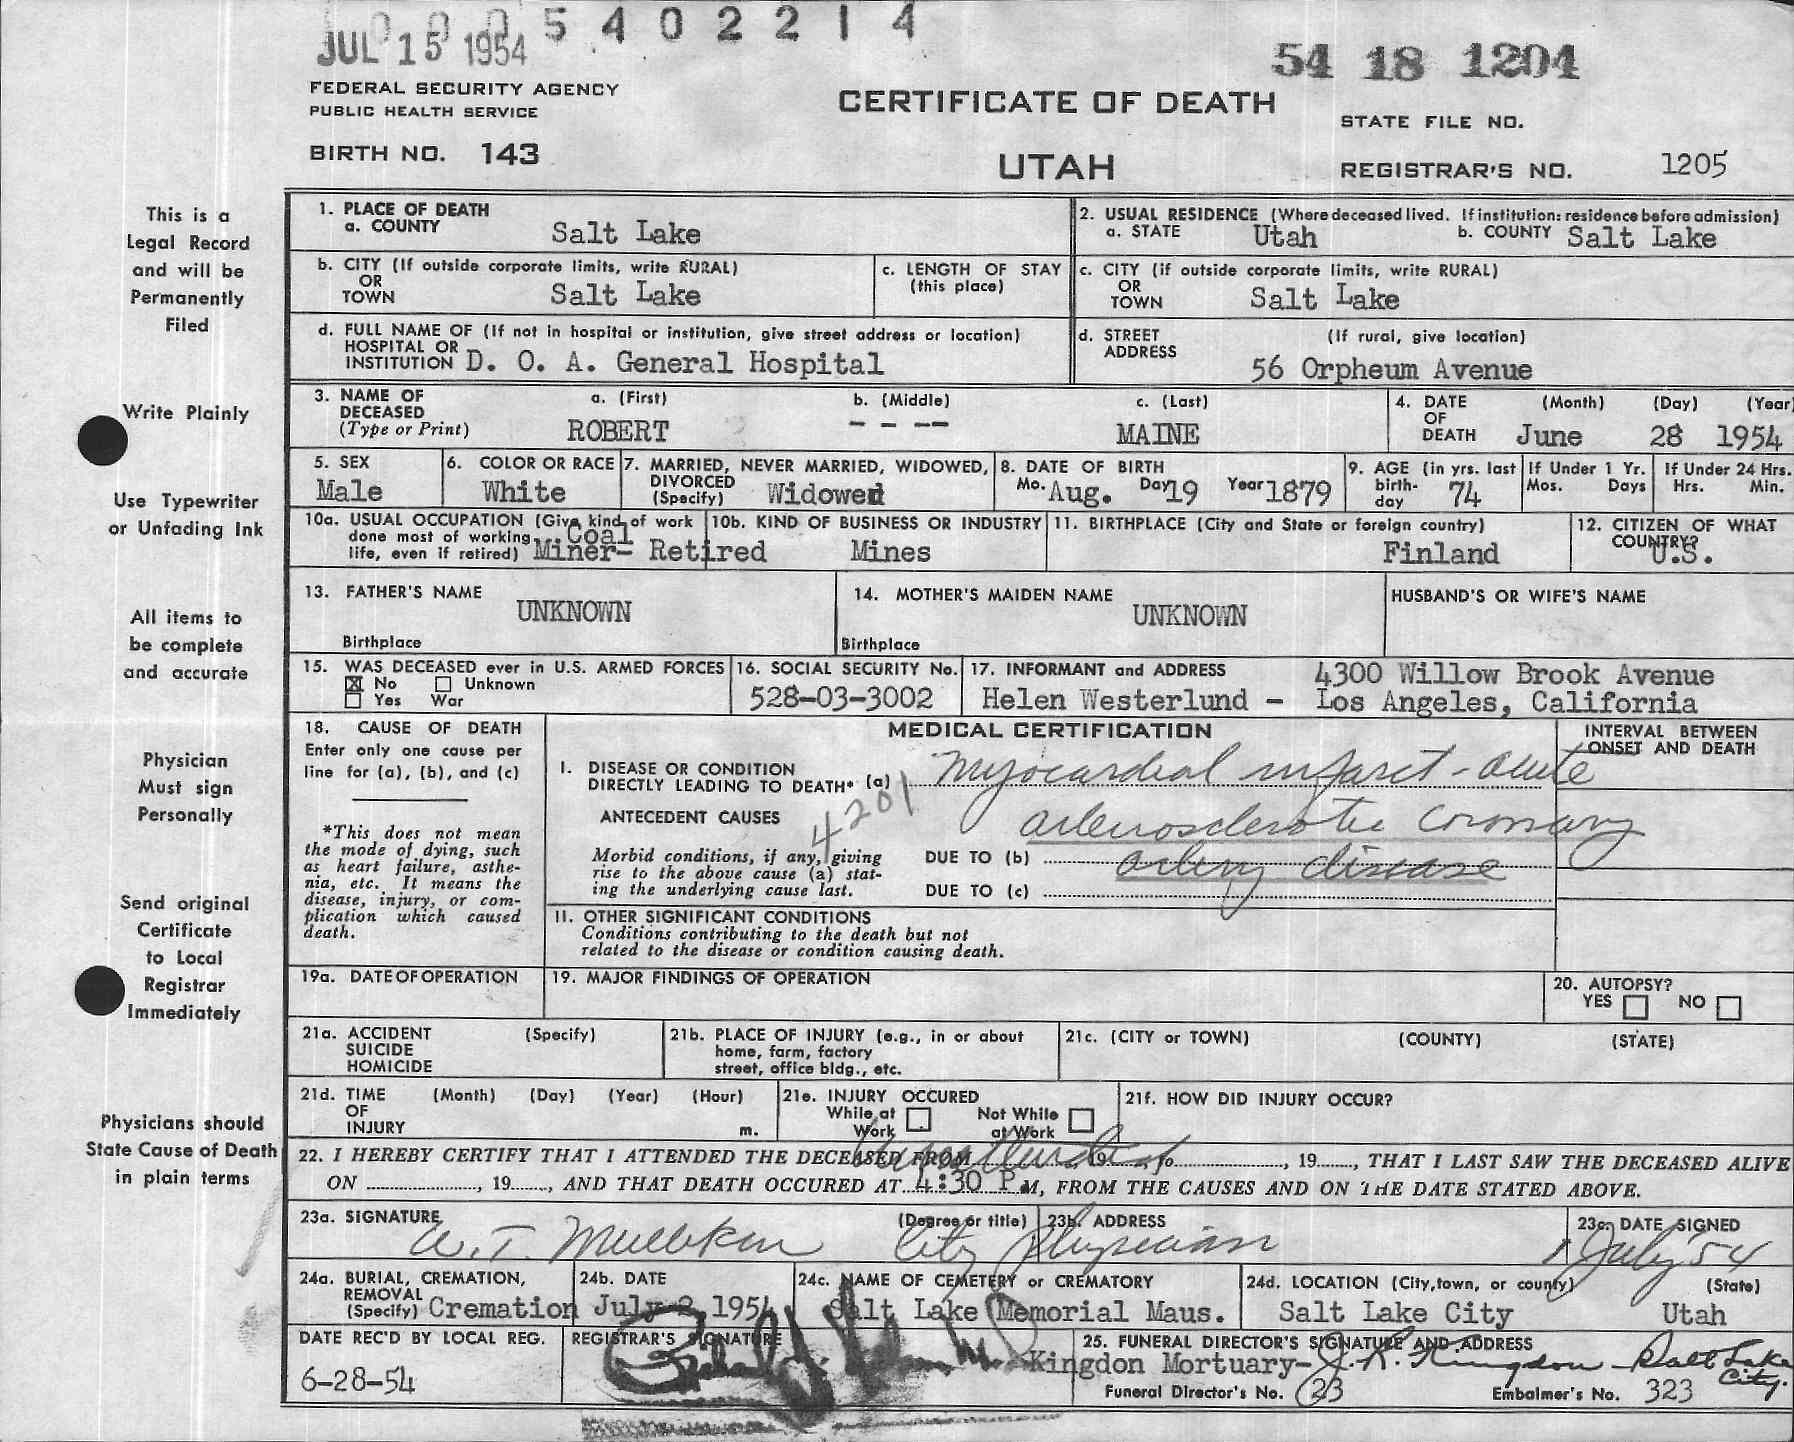 JUL 15 1954
0005402214
54 18 1204
FEDERAL SECURITY AGENCY
PUBLIC HEALTH SERVICE
BIRTH NO. 143
CERTIFICATE OF DEATH
UTAH
STATE FILE NO.
REGISTRAR'S NO. 1205
This is a
Legal Record
and will be
Permanently
Filed
Write Plainly
Use Typewriter
or Unfading Ink
All items to
be complete
and accurate
Physician
Must sign
Personally
Send original
Certificate
to Local
Registrar
Immediately
Physicians should
State Cause of Death
in plain terms
1. PLACE OF DEATH
a. COUNTY Salt Lake
2. USUAL RESIDENCE (Where deceased lived. If institution: residence before admission)
a. STATE Utah b. COUNTY Salt Lake
b. CITY (If outside corporate limits, write RURAL)
OR
TOWN Salt Lake
c. LENGTH OF STAY
(this place)
c. CITY (if outside corporate limits, write RURAL)
OR
TOWN Salt Lake
d. FULL NAME OF (If not in hospital or institution, give street address or location)
HOSPITAL OR
INSTITUTION D. O. A. General Hospital
d. STREET (If rural, give location)
ADDRESS
56 Orpheum Avenue
3. NAME OF
DECEASED
(Type or Print)
a. (First) b. (Middle) c. (Last)
ROBERT - - -- MAINE
4. DATE (Month) (Day) (Year)
OF
DEATH June 28 1954
5. SEX
Male
6. COLOR OR RACE
White
7. MARRIED, NEVER MARRIED, WIDOWED,
DIVORCED
(Specify) Widowed
8. DATE OF BIRTH
Mo. Aug. Day 19 Year 1879
9. AGE (in yrs. last
birth-
day 74
If Under 1 Yr.
Mos. Days
If Under 24 Hrs.
Hrs. Min.
10a. USUAL OCCUPATION (Give kind of work
done most of working Coal
life, even if retired) Miner- Retired
10b. KIND OF BUSINESS OR INDUSTRY
Mines
11. BIRTHPLACE (City and State or foreign country)
Finland
12. CITIZEN OF WHAT
COUNTRY?
U.S.
13. FATHER'S NAME
UNKNOWN
Birthplace
14. MOTHER'S MAIDEN NAME
UNKNOWN
Birthplace
HUSBAND'S OR WIFE'S NAME
15. WAS DECEASED ever in U.S. ARMED FORCES
☒ No ☐ Unknown
☐ Yes War
16. SOCIAL SECURITY No.
528-03-3002
17. INFORMANT and ADDRESS 4300 Willow Brook Avenue
Helen Westerlund - Los Angeles, California
18. CAUSE OF DEATH
Enter only one cause per
line for (a), (b), and (c)
*This does not mean
the mode of dying, such
as heart failure, asthe-
nia, etc. It means the
disease, injury, or com-
plication which caused
death.
MEDICAL CERTIFICATION
INTERVAL BETWEEN
ONSET AND DEATH
I. DISEASE OR CONDITION
DIRECTLY LEADING TO DEATH* (a) Myocardial infarct - acute
4201
ANTECEDENT CAUSES
arteriosclerotic coronary
Morbid conditions, if any, giving
rise to the above cause (a) stat-
ing the underlying cause last.
DUE TO (b) artery disease
DUE TO (c)
II. OTHER SIGNIFICANT CONDITIONS
Conditions contributing to the death but not
related to the disease or condition causing death.
19a. DATE OF OPERATION
19. MAJOR FINDINGS OF OPERATION
20. AUTOPSY?
YES ☐ NO ☐
21a. ACCIDENT (Specify)
SUICIDE
HOMICIDE
21b. PLACE OF INJURY (e.g., in or about
home, farm, factory
street, office bldg., etc.
21c. (CITY or TOWN) (COUNTY) (STATE)
21d. TIME (Month) (Day) (Year) (Hour)
OF
INJURY m.
21e. INJURY OCCURED
While at
Work ☐
Not While
at Work ☐
21f. HOW DID INJURY OCCUR?
22. I HEREBY CERTIFY THAT I ATTENDED THE DECEASED FROM , 19 , to , 19 , THAT I LAST SAW THE DECEASED ALIVE
ON , 19 , AND THAT DEATH OCCURED AT 4:30 P.M, FROM THE CAUSES AND ON THE DATE STATED ABOVE.
23a. SIGNATURE (Degree or title)
City Physician
23b. ADDRESS
23c. DATE SIGNED
1 July '54
24a. BURIAL, CREMATION,
REMOVAL
(Specify) Cremation
24b. DATE
July 2 1954
24c. NAME OF CEMETERY or CREMATORY
Salt Lake Memorial Maus.
24d. LOCATION (City, town, or county) (State)
Salt Lake City Utah
DATE REC'D BY LOCAL REG.
6-28-54
REGISTRAR'S SIGNATURE
25. FUNERAL DIRECTOR'S SIGNATURE AND ADDRESS
Kingdon Mortuary- J. R. Kingdon - Salt Lake City.
Funeral Director's No. 23 Embalmer's No. 323